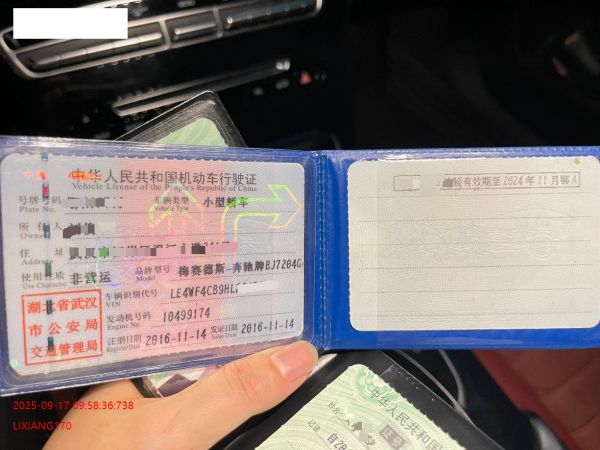 中华人民共和国机动车行驶证
Vehicle License of the People's Republic of China
号牌号码
Plate No.
车辆类型 小型轿车
Vehicle Type
所有人
Owner
住址
使用性质 非营运
Use Character
品牌型号 梅赛德斯-奔驰牌BJ7204G
Model
车辆识别代号 LE4WF4CB9HL
VIN
发动机号码 10499174
Engine No.
注册日期 2016-11-14
Register Date
发证日期 2016-11-14
Issue Date
湖北省武汉
市公安局
交通管理局
有效期至 2024 年 11 月鄂 A
中华人民共和国
姓名
证号
记录
2025-09-17 09:58:36:738
LIXIANG170